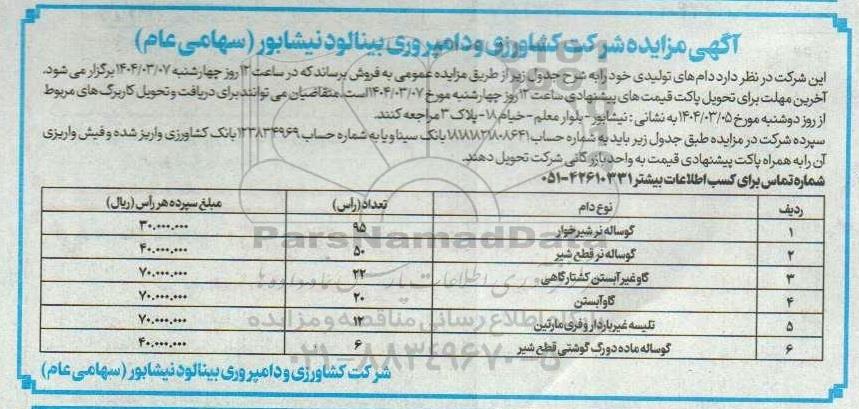 آگهی مزایده شرکت کشاورزی و دامپروری بینالود نیشابور (سهامی عام)
این شرکت در نظر دارد دام های تولیدی خود را به شرح جدول زیر از طریق مزایده عمومی به فروش برساند که در ساعت ۱۲ روز چهارشنبه ۱۴۰۴/۰۳/۰۷ برگزار می شود.
آخرین مهلت برای تحویل پاکت قیمت های پیشنهادی ساعت ۱۲ روز چهارشنبه مورخ ۱۴۰۴/۰۳/۰۷ است. متقاضیان می توانند برای دریافت و تحویل کاربرگ های مربوط
از روز دوشنبه مورخ ۱۴۰۴/۰۳/۰۵ به نشانی : نیشابور - بلوار معلم - خیام ۱۸ - پلاک ۳ مراجعه کنند.
سپرده شرکت در مزایده طبق جدول زیر باید به شماره حساب بانک سینا و یا به شماره حساب ۱۲۳۸۳۴۹۶۹ بانک کشاورزی واریز شده و فیش واریزی
آن را به همراه پاکت پیشنهادی قیمت به واحد بازرگانی شرکت تحویل دهند.
شماره تماس برای کسب اطلاعات بیشتر ۴۲۶۱۰۳۳۱-۰۵۱
ردیف نوع دام تعداد (راس) مبلغ سپرده هر راس (ریال)
۱ گوساله نر شیرخوار ۹۵ ۳۰.۰۰۰.۰۰۰
۲ گوساله نر قطع شیر ۵۰ ۴۰.۰۰۰.۰۰۰
۳ گاو غیر آبستن کشتارگاهی ۲۲ ۷۰.۰۰۰.۰۰۰
۴ گاو آبستن ۲۰ ۷۰.۰۰۰.۰۰۰
۵ تلیسه غیر باردار و فری مارتین ۱۲ ۷۰.۰۰۰.۰۰۰
۶ گوساله ماده دورگ گوشتی قطع شیر ۶ ۴۰.۰۰۰.۰۰۰
شرکت کشاورزی و دامپروری بینالود نیشابور (سهامی عام)
ParsNamadData
پایگاه اطلاع رسانی مناقصه و مزایده
۰۲۱-۸۸۳۴۹۶۷۰-۵